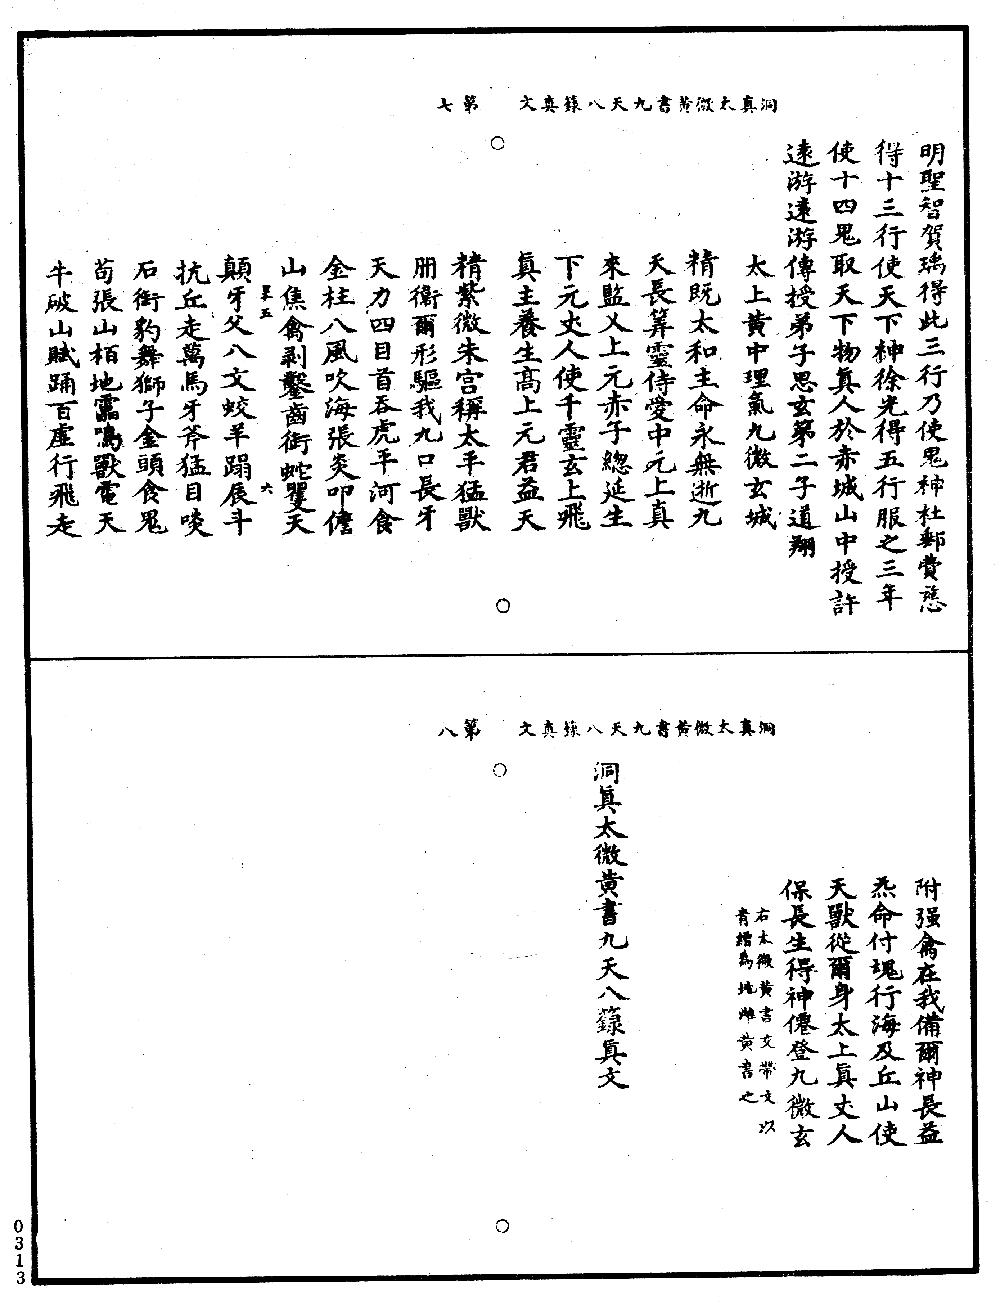 洞真太微黃書九天八籙真文　第七
明聖智賀瑀得此三行乃使鬼神杜郵費慈
得十三行使天下神徐光得五行服之三年
使十四鬼取天下物真人於赤城山中授許
遠游遠游傳授弟子思玄第二子道翔
太上黃中理氣九微玄城
精既太和主命永無逝九
天長筭靈侍愛中元上真
來監乂上元赤子總延生
下元丈人使千靈玄上飛
真主養生高上元君益天
精紫微朱宮稱太平猛獸
册衛爾形驅我九口長牙
天力四目首吞虎平河食
金柱八風吹海張炎叩僬
山焦禽剥鑿齒銜蛇瞿天
景五　六
顛牙父八文蛟羊蹋辰斗
抗丘走萬馬牙斧猛目啖
石銜豹舞獅子金頭食鬼
苟張山栢地䨴鳴獸電天
牛破山賦踊百虛行飛走
洞真太微黃書九天八籙真文　第八
附强禽在我備爾神長益
炁命付塊行海及丘山使
天獸從爾身太上真丈人
保長生得神僊登九微玄
右太微黃書交帶文以
青繒為地雌黃書之
洞真太微黃書九天八籙真文
0313